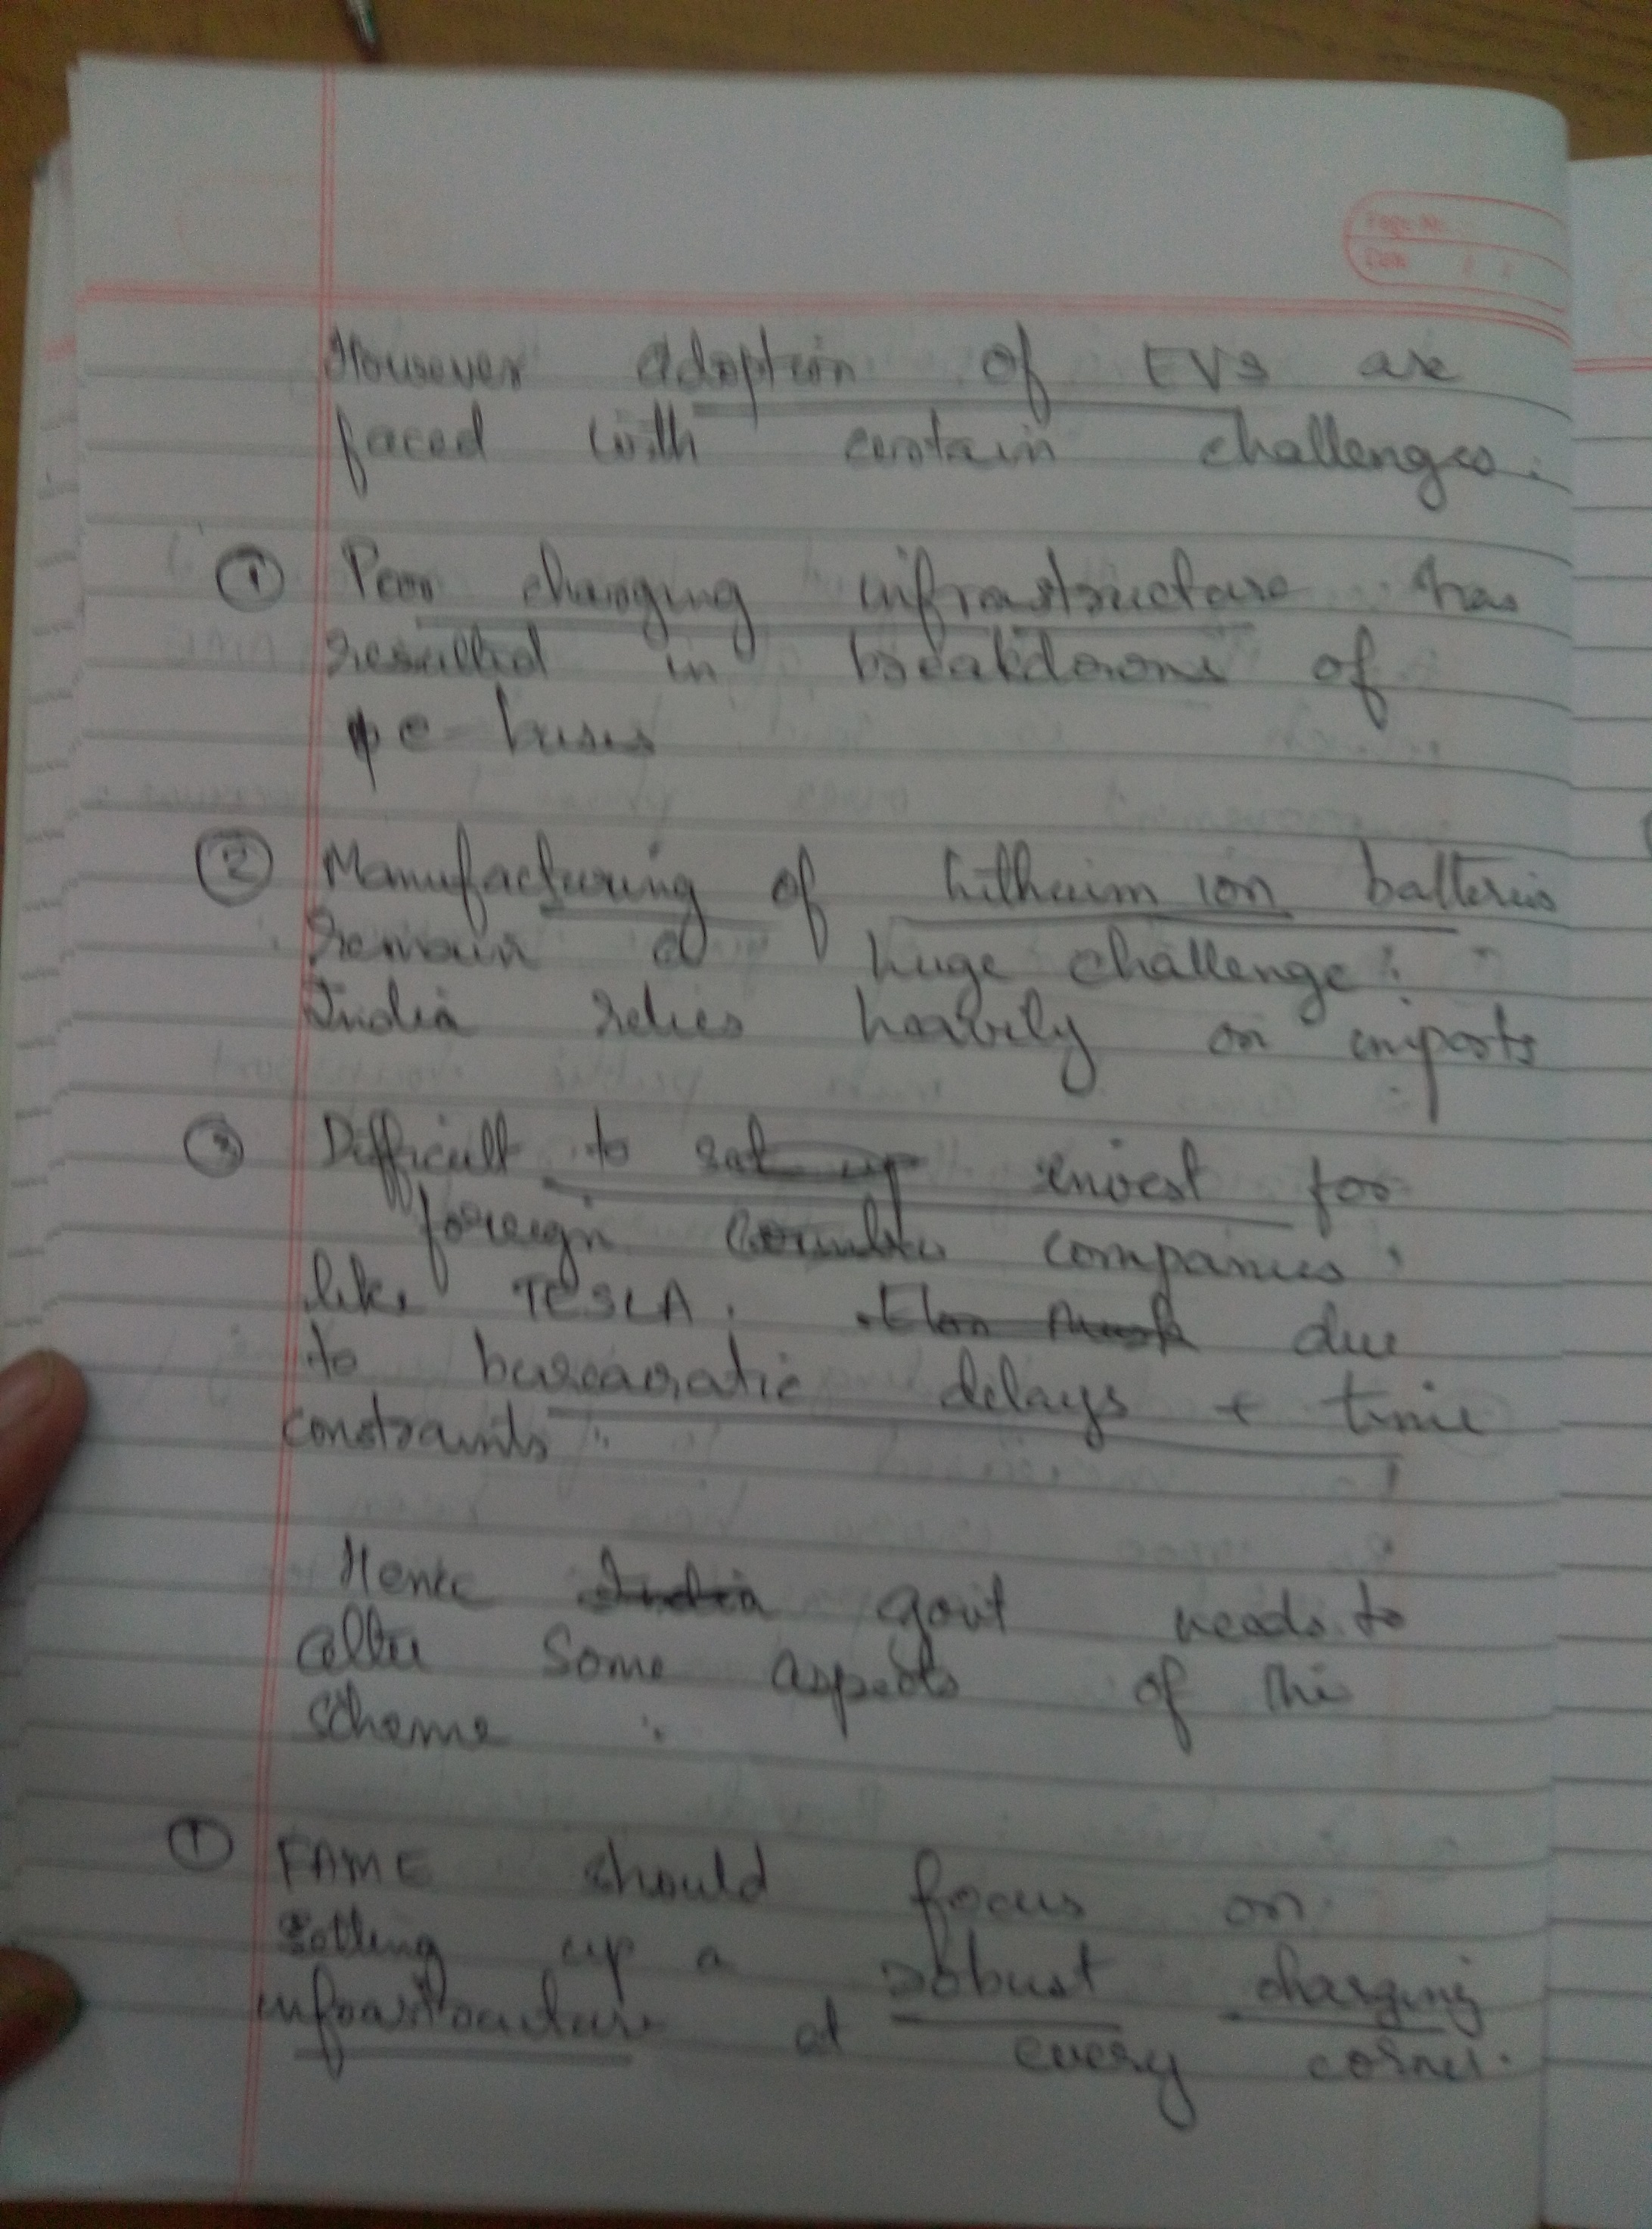 Page No.
Date / /
However adoption of EVs are
faced with certain challenges.
① Poor charging infrastructure has
resulted in breakdowns of
e-buses
② Manufacturing of Lithuim ion batteries
remain a huge challenge.
India relies heavily on imports
③ Difficult to set up invest for
foreign companies
like TESLA. Elon Musk due
to bureacratic delays + time
constraints.
Hence India govt needs to
alter some aspects of the
scheme :
① FAME should focus on
setting up a robust charging
infrastructure at every corner.